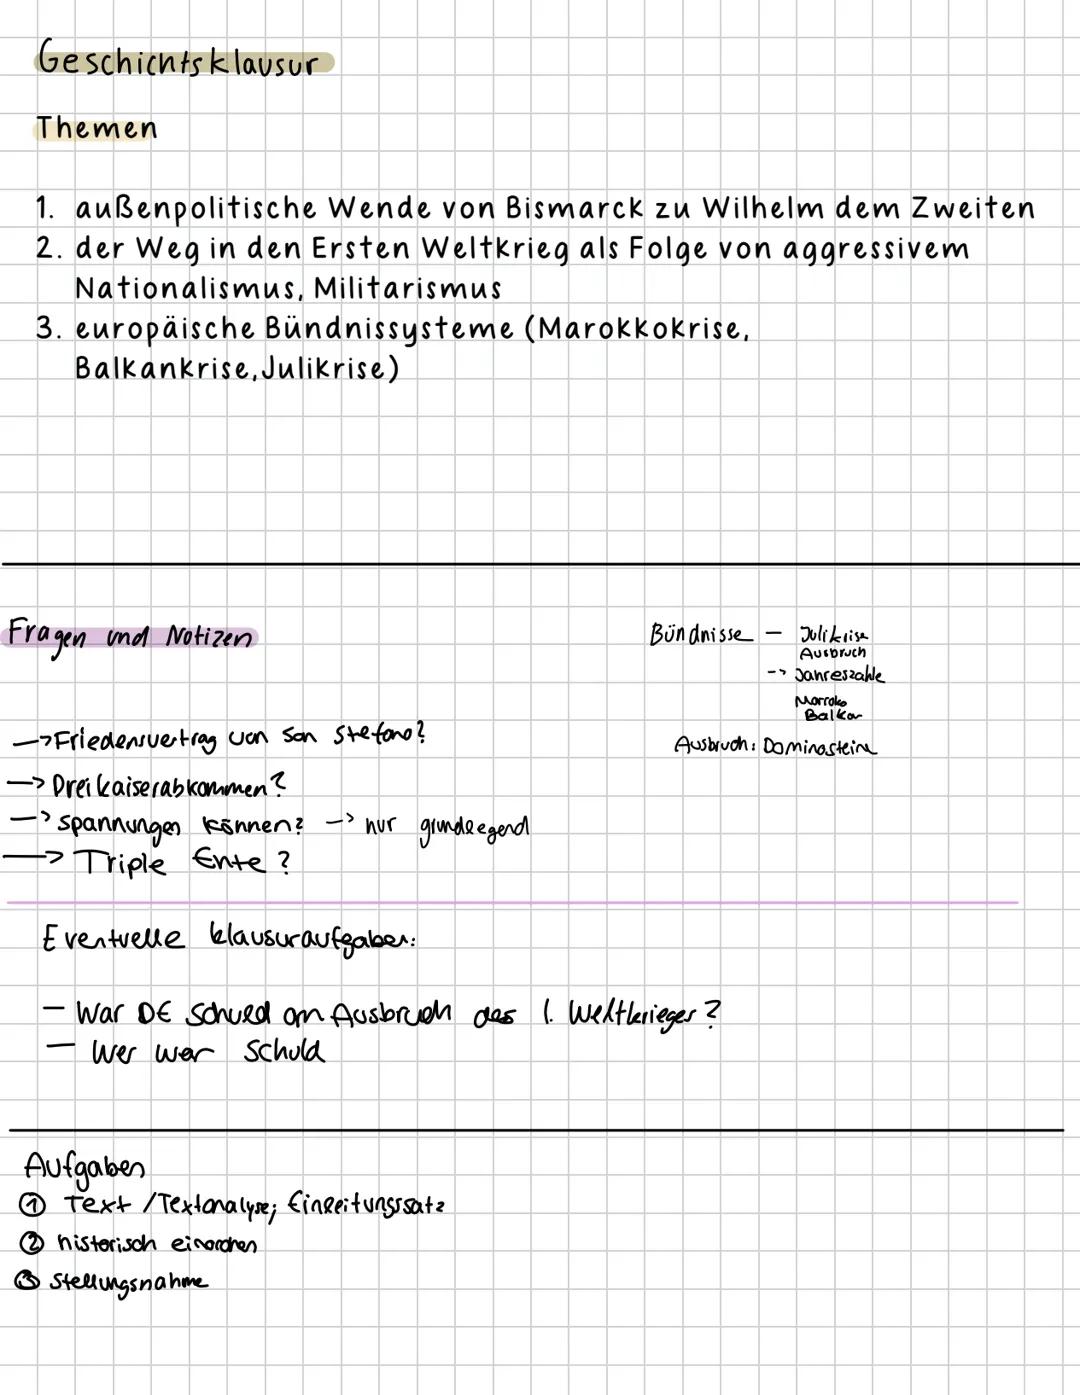 Geschichtsklausur
Themen
1. außenpolitische Wende von Bismarck zu Wilhelm dem Zweiten
2. der Weg in den Ersten Weltkrieg als Folge von aggressivem
Nationalismus, Militarismus
3. europäische Bündnissysteme (Marokkokrise,
Balkankrise, Julikrise)
Fragen und Notizen
Bündnisse – Julikrise
Ausbruch
--> Jahreszahle
Marroko
Balkan
Ausbruch: Dominosteine
—> Friedensvertrag von San Stefano?
—> Dreikaiserabkommen?
—> spannungen können? —> nur grundlegend
—> Triple Ente?
Eventuelle klausuraufgaben:
– War DE Schuld am Ausbruch des 1. Weltkrieges?
– Wer war Schuld
Aufgaben
① Text /Textanalyse; Einleitungssatz
② historisch einordnen
③ Stellungsnahme